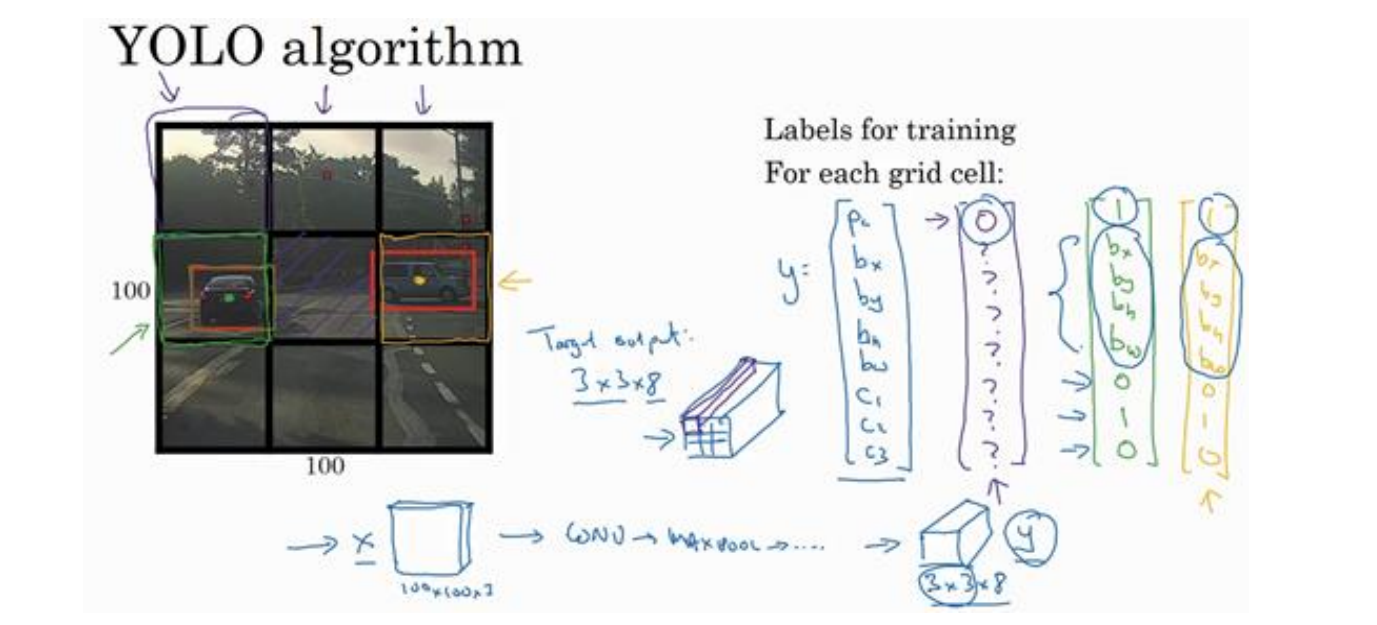 YOLO algorithm
100
100
Labels for training
For each grid cell:
y:
Pc
bx
by
bh
bw
C1
C2
C3
0
?
?
?
?
?
?
?
1
bx
by
bh
bw
0
1
0
1
bx
by
bh
bw
0
1
0
Target output:
3x3x8
x
100x100x3
CONV → MAXPOOL → ....
y
3x3x8